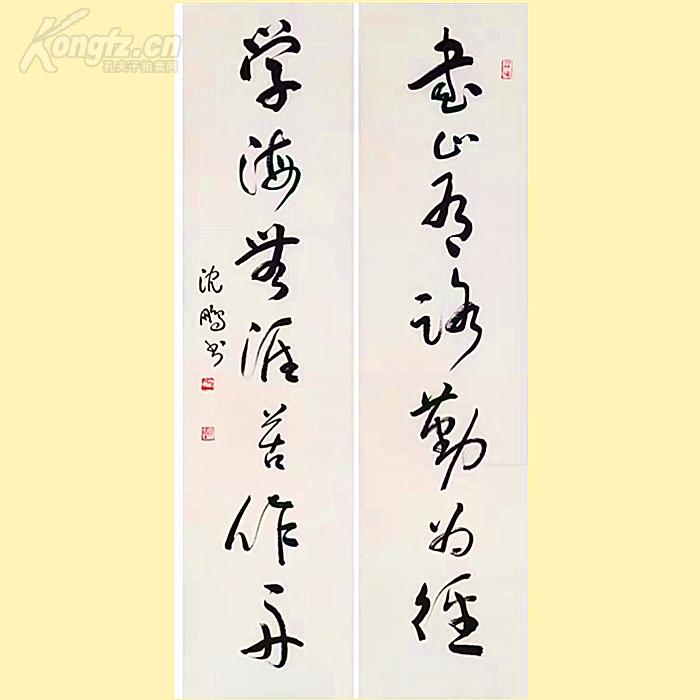 书山有路勤为径
学海无涯苦作舟
沈鹏书
Kongfz.cn
孔夫子拍卖网